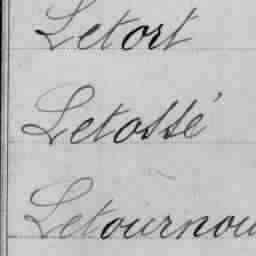 Letort
Letossé
Letournou